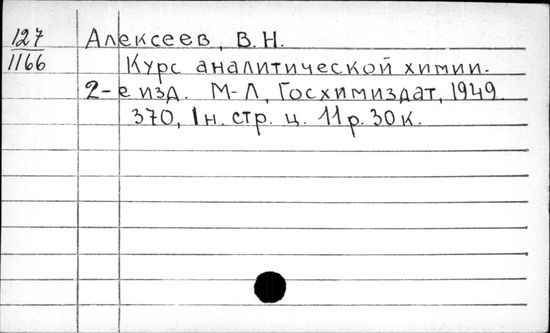 127
1166
Алексеев, В.Н.
Курс аналитической химии.
2-е изд. М-Л, Госхимиздат, 1949.
370, 1 н. стр. ц. 11 р. 30 к.